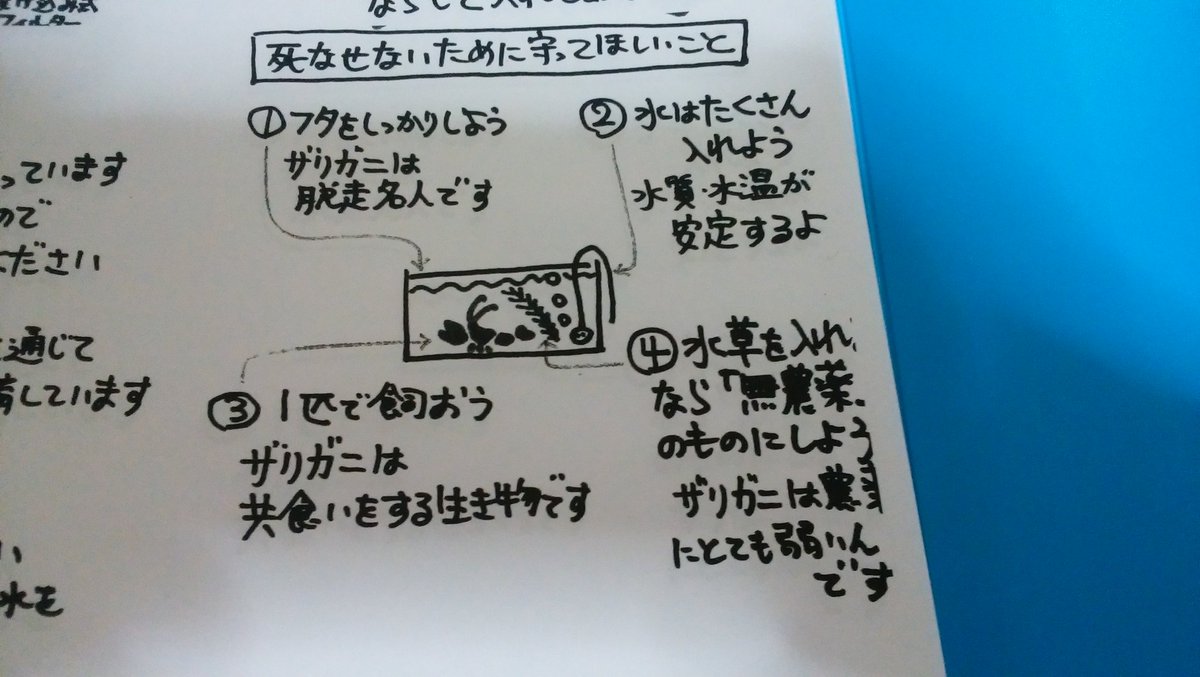 フィルター
ならして入れ
死なせないために守ってほしいこと
① フタをしっかりしよう
ザリガニは
脱走名人です
② 水はたくさん
入れよう
水質・水温が
安定するよ
③ 1匹で飼おう
ザリガニは
共食いをする生き物です
④ 水草を入れ
なら「無農薬
のものにしよう
ザリガニは農
にとても弱いん
です
っています
ので
ください
通じて
しています
い
水を